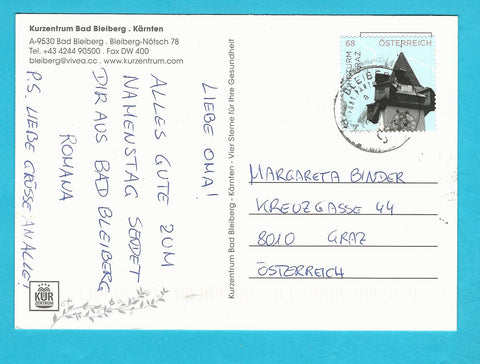 Kurzentrum Bad Bleiberg . Kärnten
A-9530 Bad Bleiberg . Bleiberg-Nötsch 78
Tel. +43 4244 90500 . Fax DW 400
bleiberg@vivea.cc . www.kurzentrum.com
LIEBE OMA!
ALLES GUTE ZUM
NAMENSTAG SENDET
DIR AUS BAD BLEIBERG
ROMANA
P.S. LIEBE GRÜSSE AN ALLE!
KUR
ZENTRUM
Kurzentrum Bad Bleiberg - Kärnten - Vier Sterne für Ihre Gesundheit
68 ÖSTERREICH
UHRTURM
GRAZ
BLEIBERG
MARGARETA BINDER
KREUZGASSE 44
8010 GRAZ
ÖSTERREICH